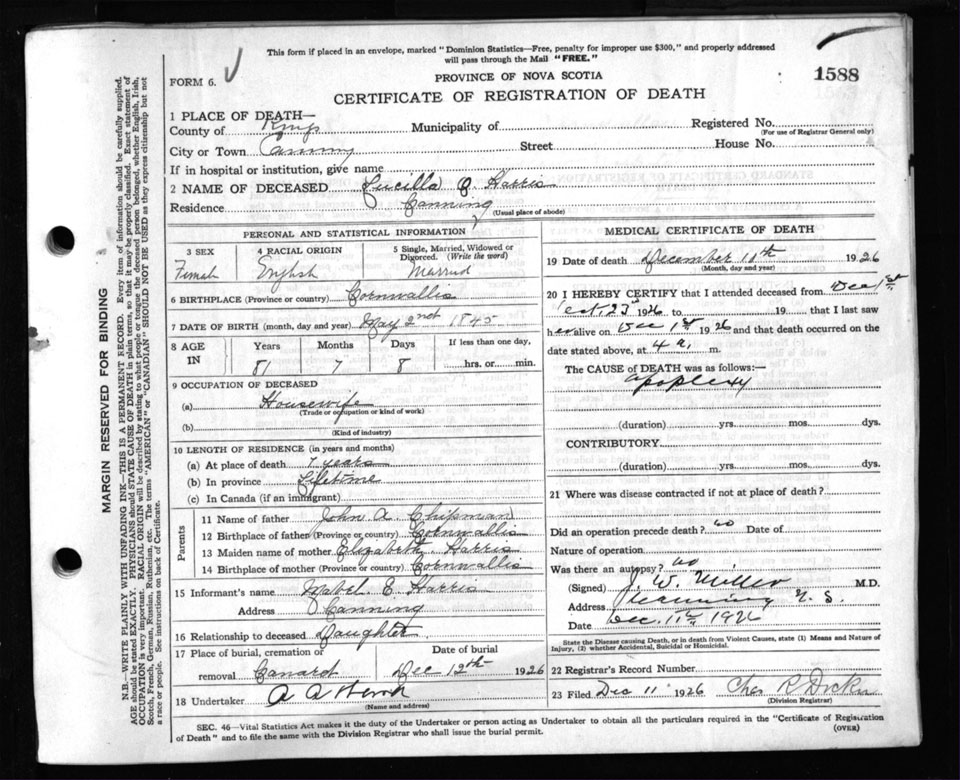 This form if placed in an envelope, marked "Dominion Statistics—Free, penalty for improper use $300," and properly addressed
will pass through the Mail "FREE."
FORM 6.
PROVINCE OF NOVA SCOTIA
1588
CERTIFICATE OF REGISTRATION OF DEATH
1 PLACE OF DEATH—
County of Kings Municipality of Registered No.
(For use of Registrar General only)
City or Town Canning Street House No.
If in hospital or institution, give name
2 NAME OF DECEASED Lucilla C. Harris
Residence Canning
(Usual place of abode)
PERSONAL AND STATISTICAL INFORMATION
3 SEX 4 RACIAL ORIGIN 5 Single, Married, Widowed or
Divorced. (Write the word)
Female English Married
6 BIRTHPLACE (Province or country) Cornwallis
7 DATE OF BIRTH (month, day and year) May 2nd 1845
8 AGE IN Years Months Days If less than one day,
81 7 8 hrs. or min.
9 OCCUPATION OF DECEASED
(a) Housewife
(Trade or occupation or kind of work)
(b)
(Kind of industry)
10 LENGTH OF RESIDENCE (in years and months)
(a) At place of death 7 years
(b) In province Lifetime
(c) In Canada (if an immigrant)
Parents
11 Name of father John A. Chipman
12 Birthplace of father (Province or country) Cornwallis
13 Maiden name of mother Elizabeth Harris
14 Birthplace of mother (Province or country) Cornwallis
15 Informant's name Mabel E. Harris
Address Canning
16 Relationship to deceased Daughter
17 Place of burial, cremation or Date of burial
removal Canard Dec 12th 1926
18 Undertaker A A
(Name and address)
MEDICAL CERTIFICATE OF DEATH
19 Date of death December 10th 1926
(Month, day and year)
20 I HEREBY CERTIFY that I attended deceased from Dec 1st
Oct. 23d 1926 to 19 that I last saw
her alive on Dec 1st 1926 and that death occurred on the
date stated above, at 4 a. m.
The CAUSE OF DEATH was as follows:—
apoplexy
(duration) yrs. mos. dys.
CONTRIBUTORY
(duration) yrs. mos. dys.
21 Where was disease contracted if not at place of death?
Did an operation precede death? no Date of
Nature of operation
Was there an autopsy? no
(Signed) J. W. Miller M.D.
Address Canning N. S.
Date Dec. 11th 1926
State the Disease causing Death, or in death from Violent Causes, state (1) Means and Nature of
Injury, (2) whether Accidental, Suicidal or Homicidal.
22 Registrar's Record Number
23 Filed Dec 11 1926 Chas R
(Division Registrar)
SEC. 46—Vital Statistics Act makes it the duty of the Undertaker or person acting as Undertaker to obtain all the particulars required in the "Certificate of Registration
of Death" and to file the same with the Division Registrar who shall issue the burial permit.
(OVER)
MARGIN RESERVED FOR BINDING
N.B.—WRITE PLAINLY WITH UNFADING INK—THIS IS A PERMANENT RECORD. Every item of information should be carefully supplied.
AGE should be stated EXACTLY. PHYSICIANS should STATE CAUSE OF DEATH in plain terms, so that it may be properly classified. Exact statement of
OCCUPATION is very important. RACIAL ORIGIN will be described by stating to what people or tongue the deceased person belonged, whether English, Irish,
Scotch, French, German, Russian, Ruthenian, etc. The terms "AMERICAN" or "CANADIAN" SHOULD NOT BE USED as they express citizenship but not
a race or people. See instructions on back of Certificate.